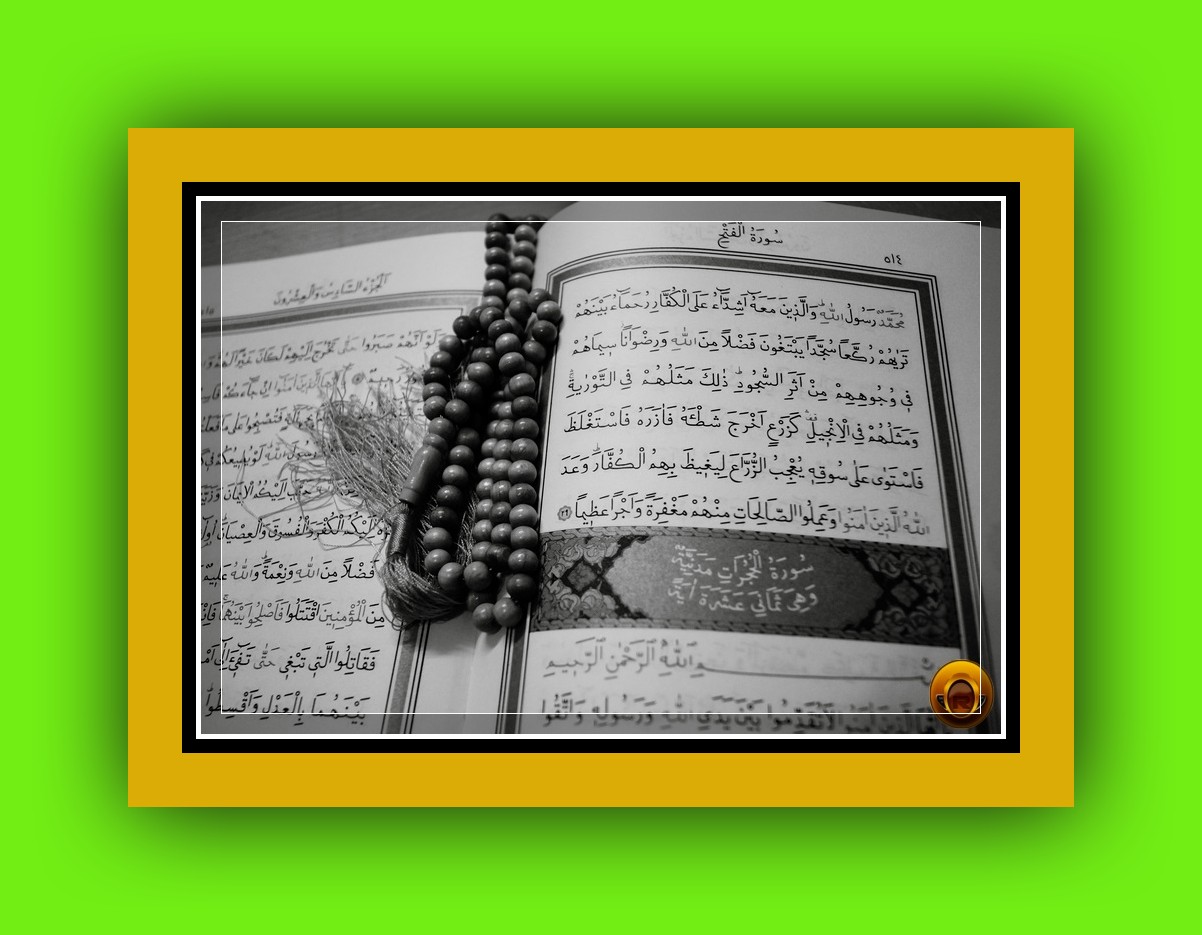 سورة الفتح
٥١٤
محمد رسول الله والذين معه اشداء على الكفار رحماء بينهم
تريهم ركعا سجدا يبتغون فضلا من الله ورضوانا سيماهم
في وجوههم من اثر السجود ذلك مثلهم في التورية
ومثلهم في الانجيل كزرع اخرج شطئه فازره فاستغلظ
فاستوى على سوقه يعجب الزراع ليغيظ بهم الكفار وعد
الله الذين امنوا وعملوا الصالحات منهم مغفرة واجرا عظيما ٢٩
سورة الحجرات مدنية
وهي ثماني عشرة اية
بسم الله الرحمن الرحيم
لا تقدموا بين يدي الله ورسوله واتقوا
الجزء السادس والعشرون
ولو انهم صبروا حتى تخرج اليهم لكان خيرا لهم
امنوا ان جاءكم
على ما
رسول الله لو يطيعكم في
حبب اليكم الايمان
اليكم الكفر والفسوق والعصيان
فضلا من الله ونعمة والله عليم
من المؤمنين اقتتلوا فاصلحوا بينهما
فقاتلوا التي تبغي حتى تفيء الى
بينهما بالعدل واقسطوا